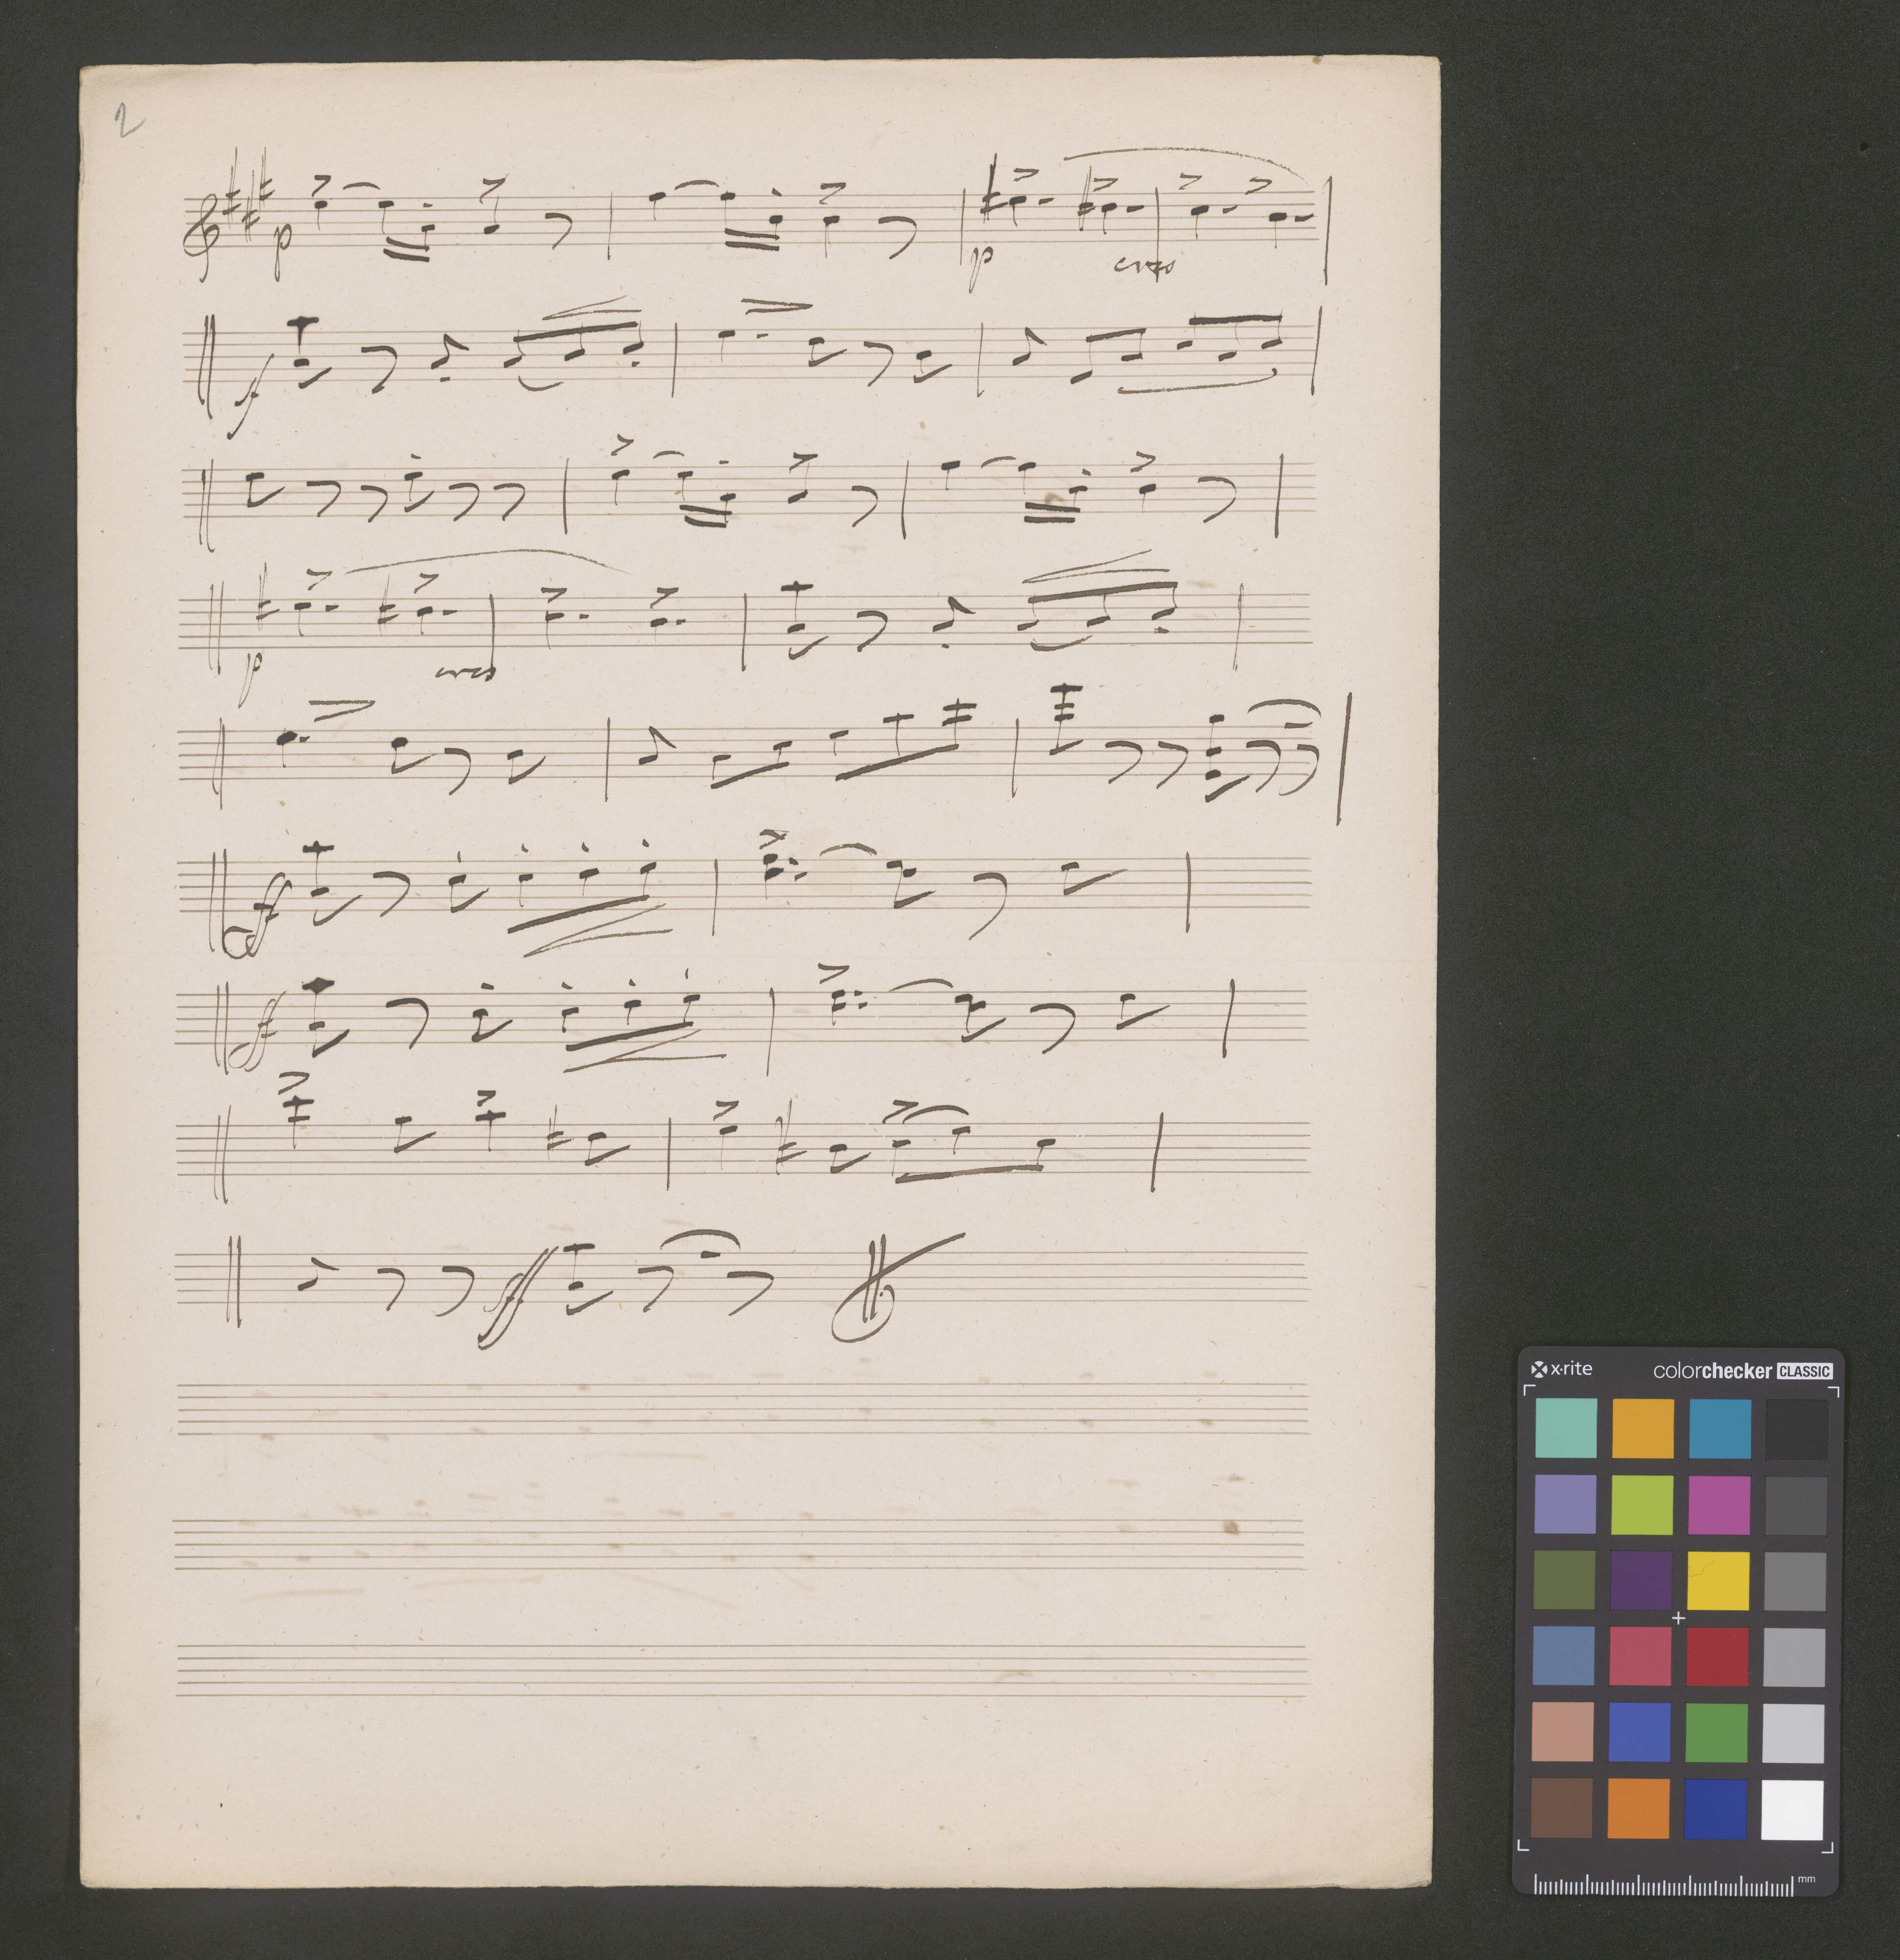 2
p
p cres
f
p cres
ff
ff
ff
x·rite colorchecker CLASSIC
mm